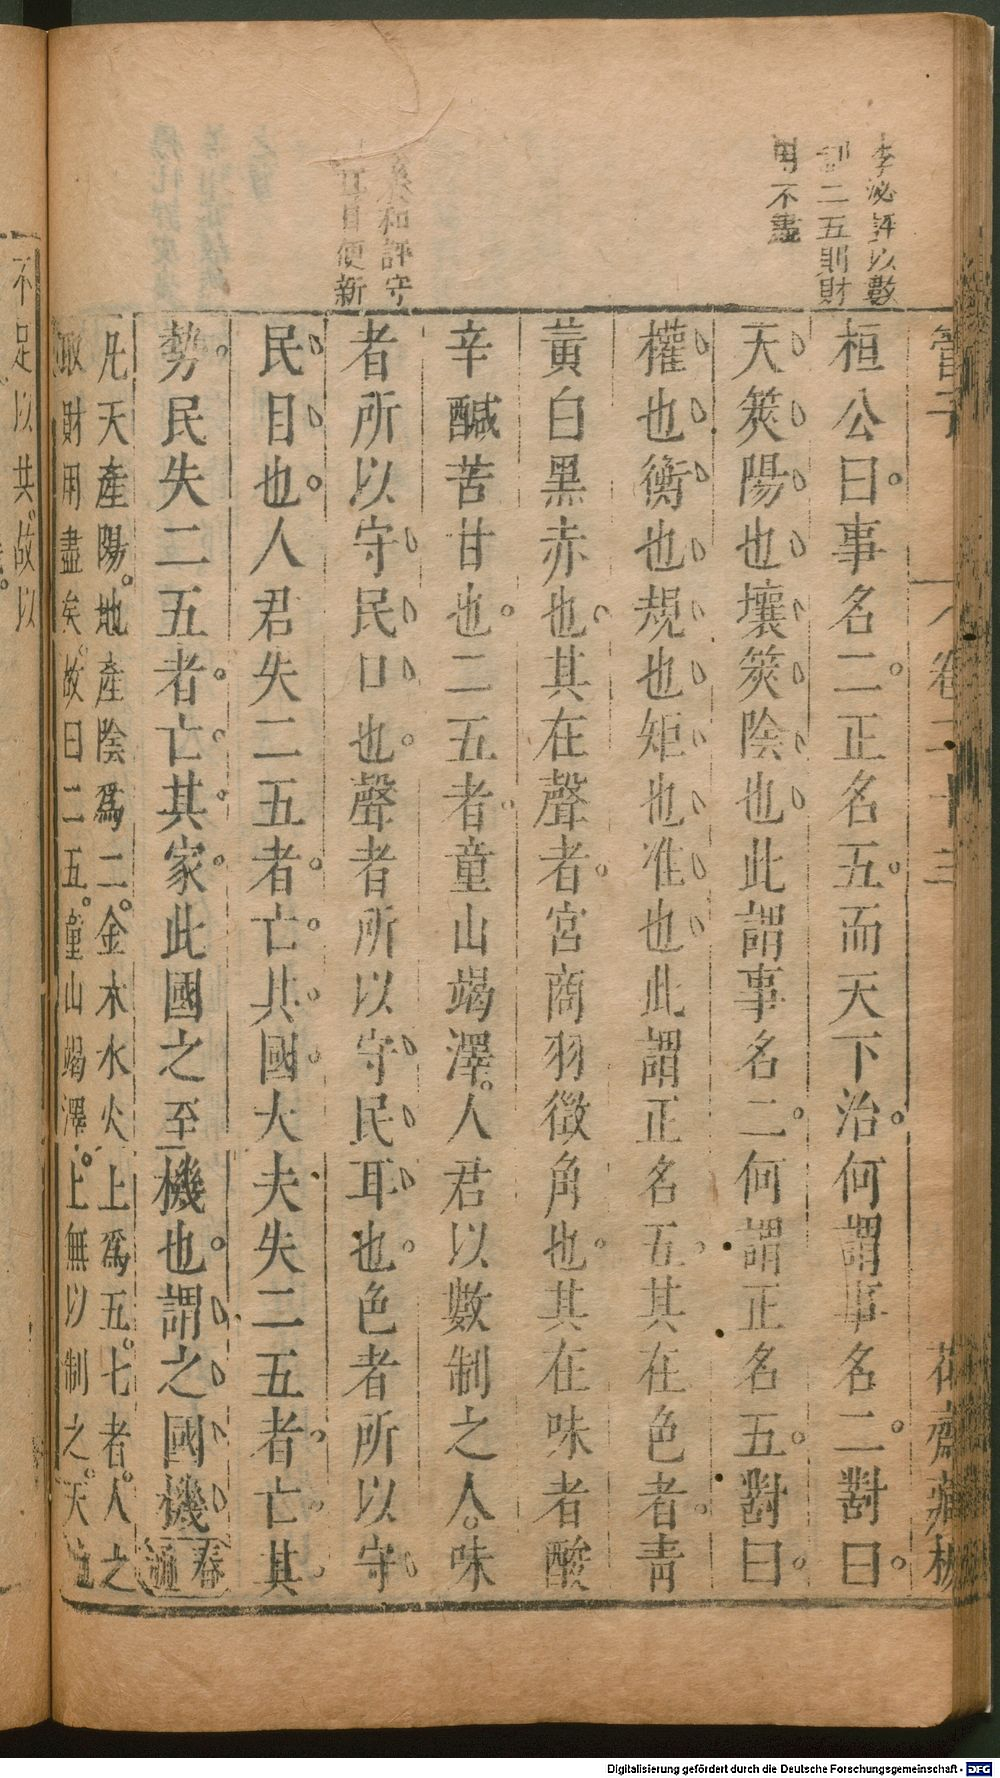 李泌評以數
二五則財
用不盡
和評守
耳目便新
管子
卷二十三
花齋藏板
桓公曰事名二正名五而天下治何謂事名二對曰
天筴陽也壤筴陰也此謂事名二何謂正名五對曰
權也衡也規也矩也准也此謂正名五其在色者靑
黃白黑赤也其在聲者宮商羽徵角也其在味者酸
辛鹹苦甘也二五者童山竭澤人君以數制之人味
者所以守民口也聲者所以守民耳也色者所以守
民目也人君失二五者亡其國大夫失二五者亡其
勢民失二五者亡其家此國之至機也謂之國機
春
通
凡天產陽地產陰爲二金木水火土爲五七者人之
取財用盡矣故曰二五童山竭澤上無以制之天
不足以共故以
Digitalisierung gefördert durch die Deutsche Forschungsgemeinschaft - DFG